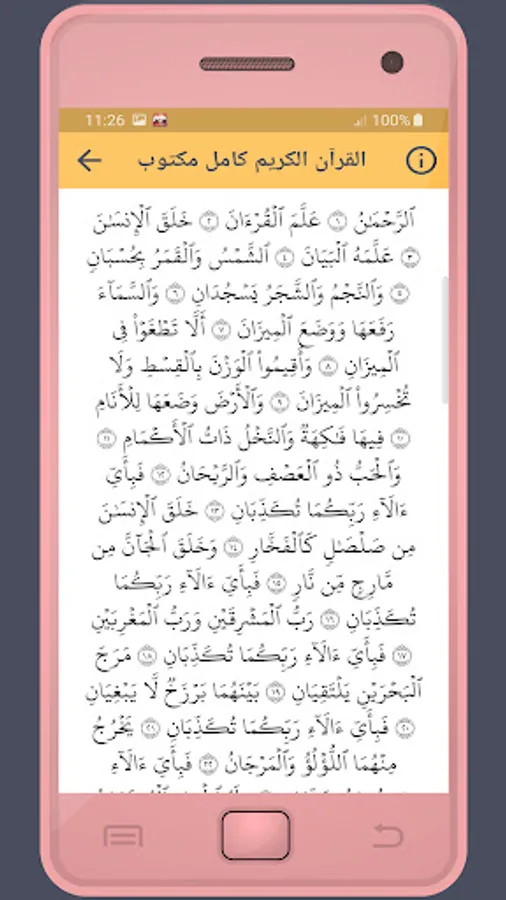 11:26 100%
القرآن الكريم كامل مكتوب
ٱلرَّحْمَٰنُ ١ عَلَّمَ ٱلْقُرْءَانَ ٢ خَلَقَ ٱلْإِنسَٰنَ
٣ عَلَّمَهُ ٱلْبَيَانَ ٤ ٱلشَّمْسُ وَٱلْقَمَرُ بِحُسْبَانٍ
٥ وَٱلنَّجْمُ وَٱلشَّجَرُ يَسْجُدَانِ ٦ وَٱلسَّمَآءَ
رَفَعَهَا وَوَضَعَ ٱلْمِيزَانَ ٧ أَلَّا تَطْغَوْا۟ فِى
ٱلْمِيزَانِ ٨ وَأَقِيمُوا۟ ٱلْوَزْنَ بِٱلْقِسْطِ وَلَا
تُخْسِرُوا۟ ٱلْمِيزَانَ ٩ وَٱلْأَرْضَ وَضَعَهَا لِلْأَنَامِ
١٠ فِيهَا فَٰكِهَةٌ وَٱلنَّخْلُ ذَاتُ ٱلْأَكْمَامِ ١١
وَٱلْحَبُّ ذُو ٱلْعَصْفِ وَٱلرَّيْحَانُ ١٢ فَبِأَىِّ
ءَالَآءِ رَبِّكُمَا تُكَذِّبَانِ ١٣ خَلَقَ ٱلْإِنسَٰنَ
مِن صَلْصَٰلٍ كَٱلْفَخَّارِ ١٤ وَخَلَقَ ٱلْجَآنَّ مِن
مَّارِجٍ مِّن نَّارٍ ١٥ فَبِأَىِّ ءَالَآءِ رَبِّكُمَا
تُكَذِّبَانِ ١٦ رَبُّ ٱلْمَشْرِقَيْنِ وَرَبُّ ٱلْمَغْرِبَيْنِ
١٧ فَبِأَىِّ ءَالَآءِ رَبِّكُمَا تُكَذِّبَانِ ١٨ مَرَجَ
ٱلْبَحْرَيْنِ يَلْتَقِيَانِ ١٩ بَيْنَهُمَا بَرْزَخٌ لَّا يَبْغِيَانِ
٢٠ فَبِأَىِّ ءَالَآءِ رَبِّكُمَا تُكَذِّبَانِ ٢١ يَخْرُجُ
مِنْهُمَا ٱللُّؤْلُؤُ وَٱلْمَرْجَانُ ٢٢ فَبِأَىِّ ءَالَآءِ